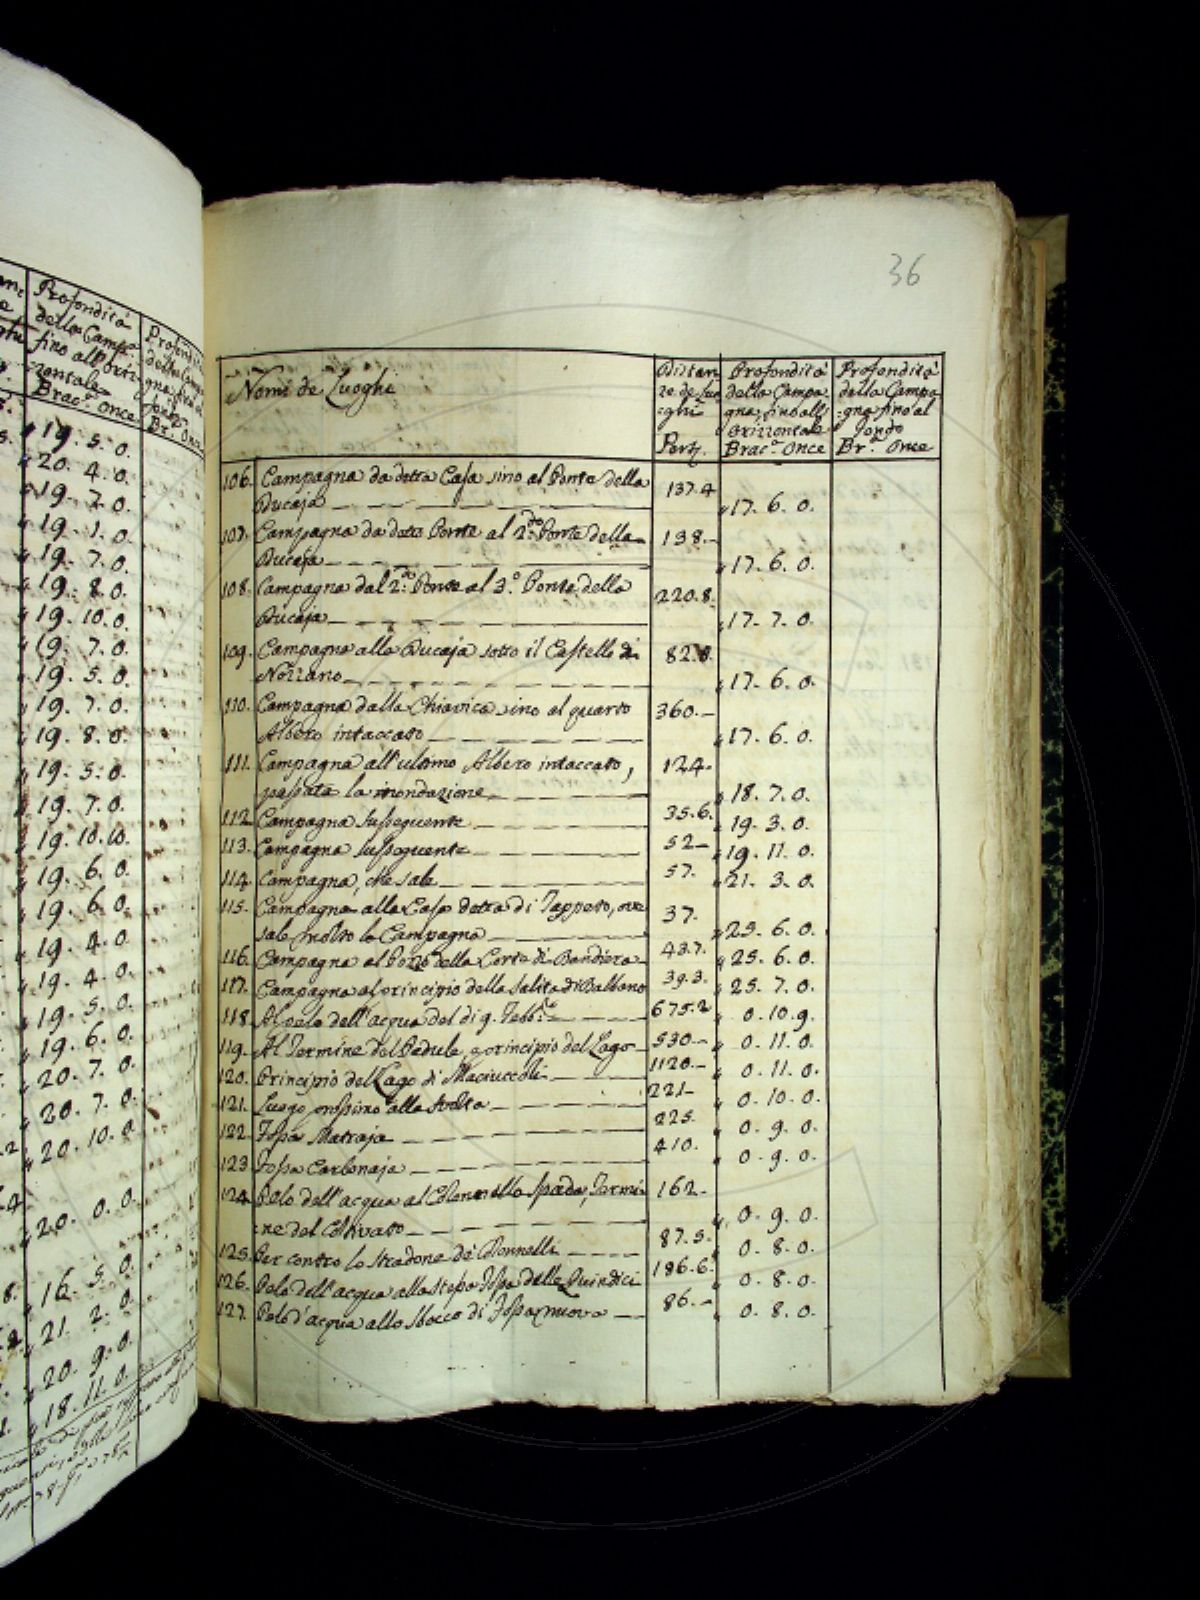 Profondità
della Camp.
fino all'Oriz-
-zontale
Brac. Once
19. 5. 0.
20. 4. 0.
19. 7. 0.
19. 1. 0.
19. 7. 0.
19. 8. 0.
19. 10. 0.
19. 7. 0.
19. 5. 0.
19. 7. 0.
19. 8. 0.
19. 5. 0.
19. 7. 0.
19. 10. 10.
19. 6. 0.
19. 6. 0.
19. 4. 0.
19. 4. 0.
19. 5. 0.
19. 6. 0.
20. 7. 0.
20. 7. 0.
20. 10. 0.
20. 0. 0.
16. 5. 0.
21. 2. 0.
20. 9. 0.
18. 11. 0.
36
Nomi de Luoghi
Distan
ze de Luo
:ghi
Pert.
Profondità
della Campa
gna, sino all'
Orizzontale
Brac. Once
Profondità
della Campa
:gna fino al
fondo
Br. Once
106. Campagna da detta Casa sino al Ponte della 137.4
Bucaja 17. 6. 0.
107. Campagna da detto Ponte al 2.do Ponte della 138.
Bucaja 17. 6. 0.
108. Campagna dal 2.do Ponte al 3.o Ponte della 220.8.
Bucaja 17. 7. 0.
109. Campagna alla Bucaja sotto il Castello di 82.8.
Nozzano 17. 6. 0.
110. Campagna dalla Chiavica sino al quarto 360.
Albero intaccato 17. 6. 0.
111. Campagna all'ultimo Albero intaccato, 124.
passata la inondazione 18. 7. 0.
112. Campagna susseguente 35.6. 19. 3. 0.
113. Campagna susseguente 52 19. 11. 0.
114. Campagna, che sale 57. 21. 3. 0.
115. Campagna alla Casa detta di Tappeto, ove 37.
sale molto la Campagna 25. 6. 0.
116. Campagna al Pozzo della Corte di Bandiera 43.7. 25. 6. 0.
117. Campagna al principio della salita di Balbano 39.3. 25. 7. 0.
118. Al pelo dell'acqua del di 9. Febb.o 675.2 0. 10. 9.
119. Al Termine del Padule, e principio del Lago 530 0. 11. 0.
120. Principio del Lago di Maciuccoli 1120 0. 11. 0.
121. Luogo prossimo alla svolta 221 0. 10. 0.
122. Fossa Matraja 225. 0. 9. 0.
123. Fossa Carbonaja 410. 0. 9. 0.
124. Pelo dell'acqua al Colonnello Spada, Termi 162.
:ne del Coltivato 0. 9. 0.
125. Per contro lo stradone de' Donnelli 87.5. 0. 8. 0.
126. Pelo dell'acqua alla stessa Fossa delle Quindici 186.6. 0. 8. 0.
127. Pelo d'acqua allo sbocco di Fossa nuova 86. 0. 8. 0.